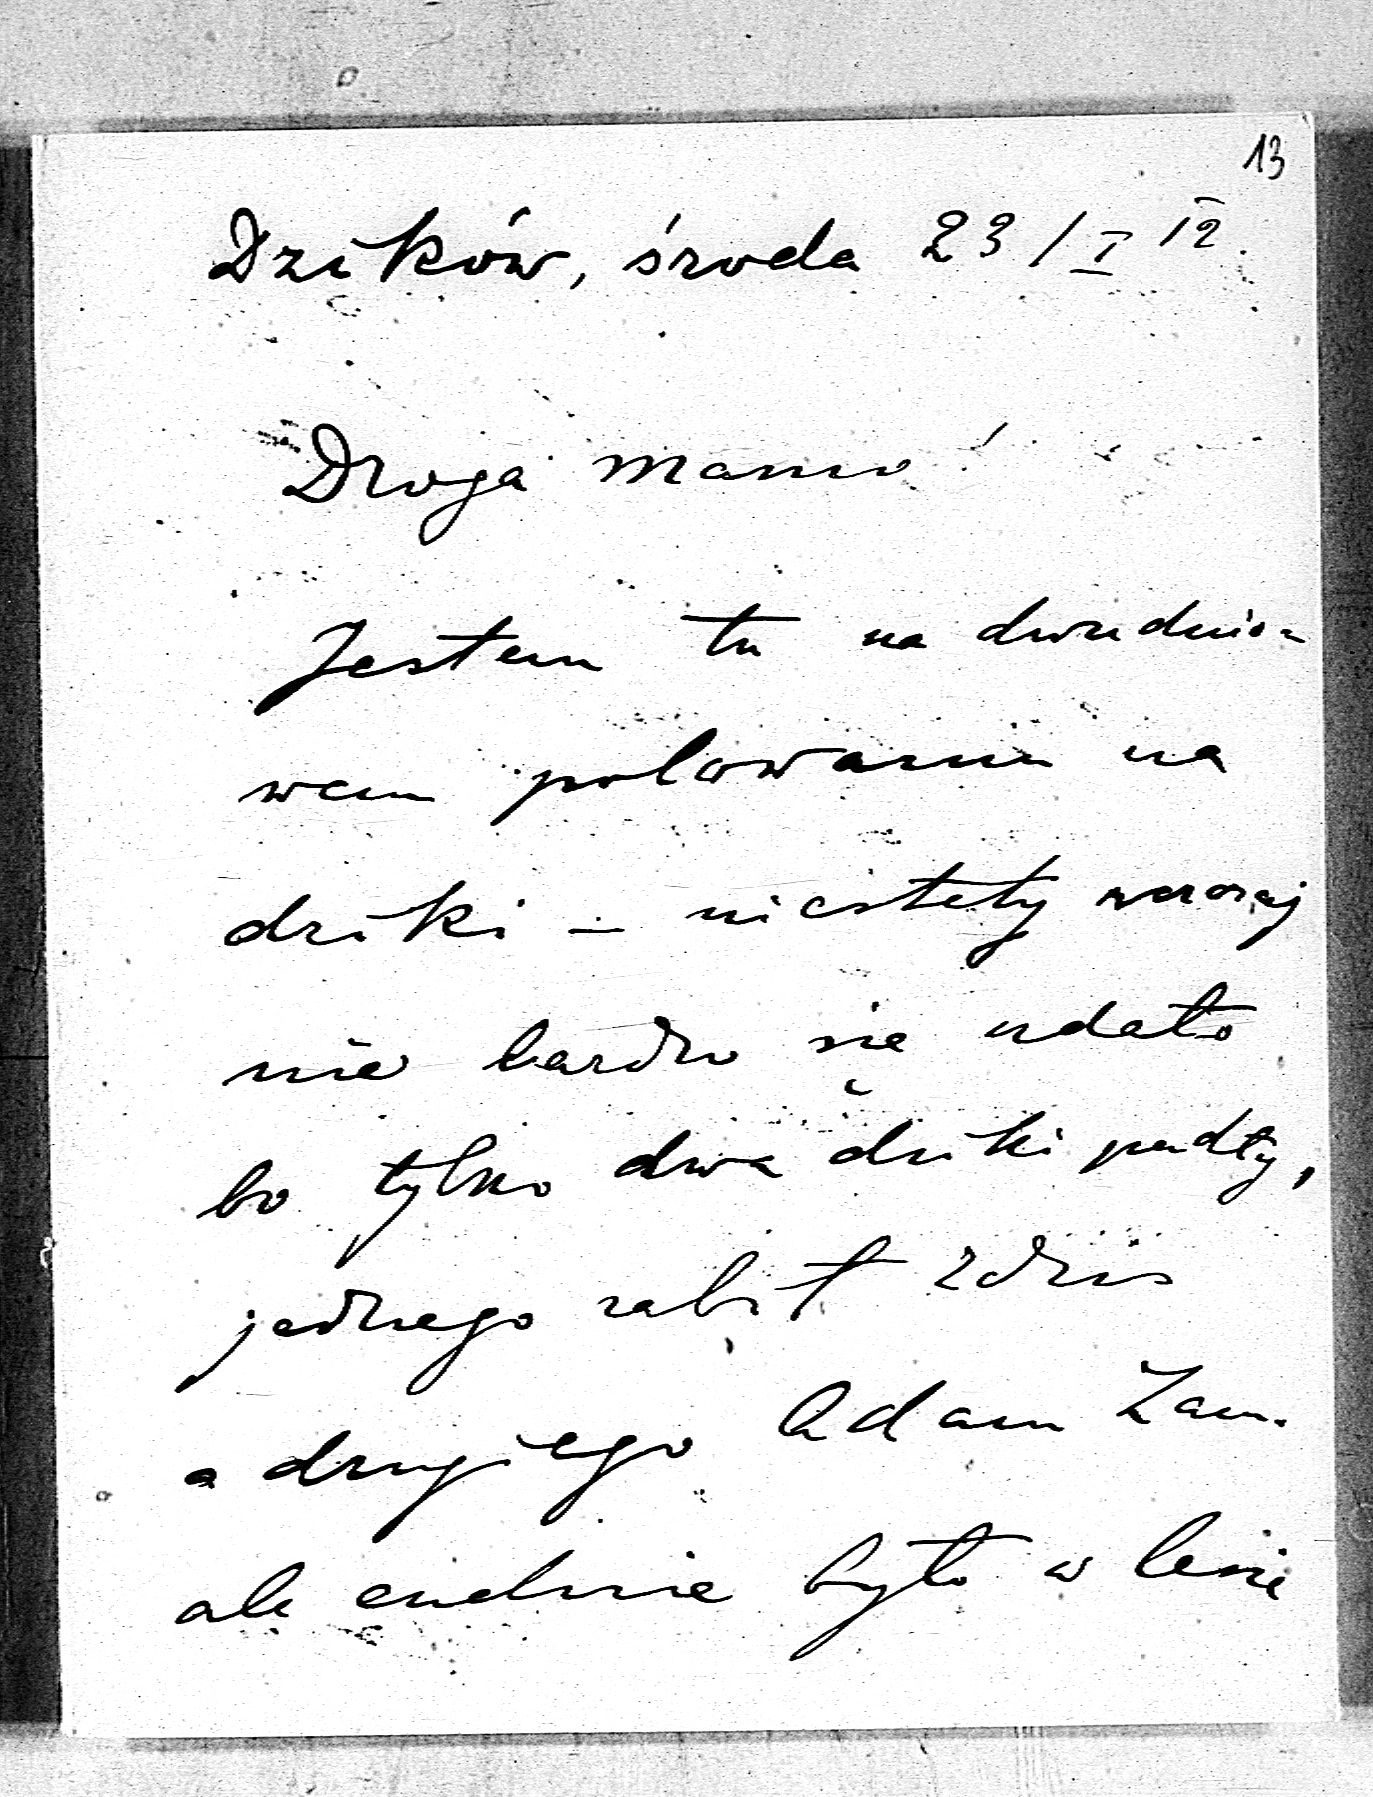 13
Dzików, środa 23/I 12.
Droga Mamo!
Jestem tu na dwudnio-
wem polowaniu na
dziki – niestety wczoraj
nie bardzo się udało
bo tylko dwa dziki padły,
jednego zabił Zdziś
a drugiego Adam Zam.
ale cudnie było w lesie